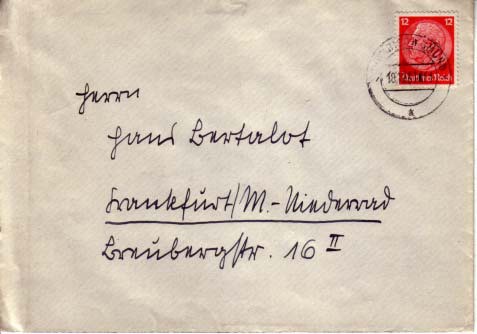 12 12
Deutsches Reich
Herrn
Hans Bertalot
Frankfurt/M.-Niederrad
Breubergstr. 16 II